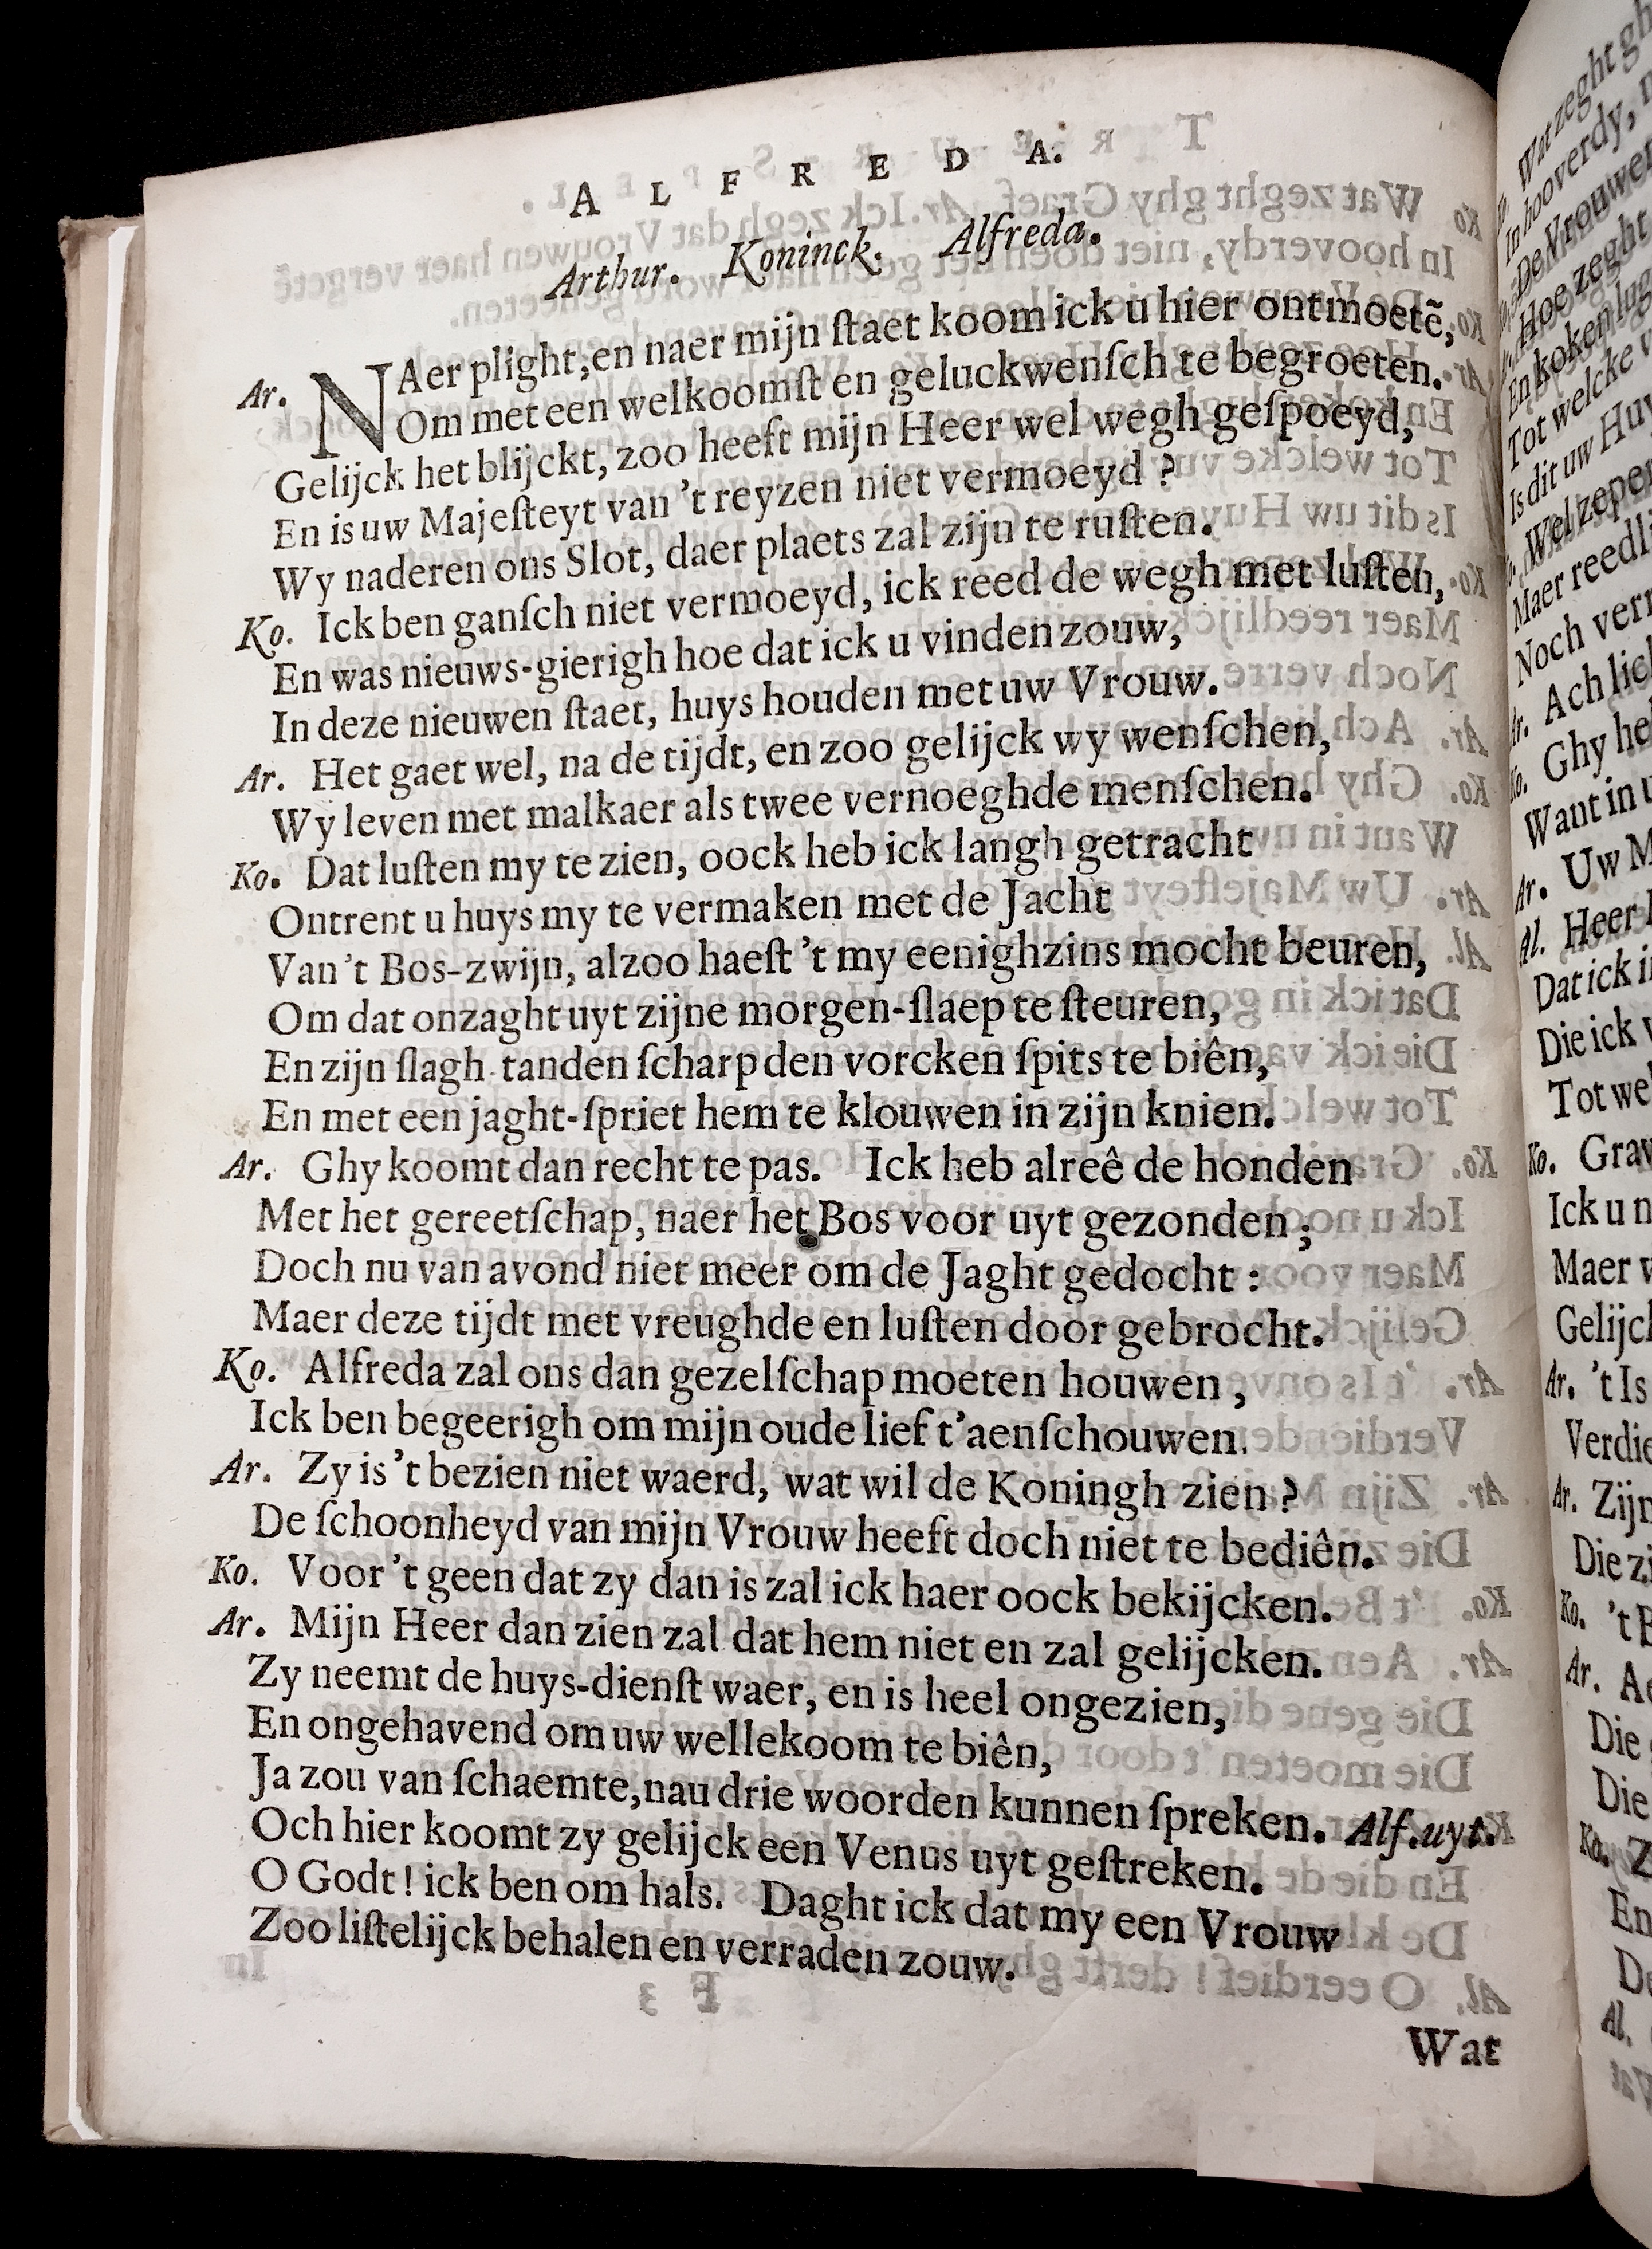 ALFREDA.
Arthur. Koninck. Alfreda.
Ar. NAer plight, en naer mijn ſtaet koom ick u hier ontmoetẽ,
Om met een welkoomſt en geluckwenſch te begroeten.
Gelijck het blijckt, zoo heeft mijn Heer wel wegh geſpoeyd,
En is uw Majeſteyt van 't reyzen niet vermoeyd?
Wy naderen ons Slot, daer plaets zal zijn te ruſten.
Ko. Ick ben ganſch niet vermoeyd, ick reed de wegh met luſten,
En was nieuws-gierigh hoe dat ick u vinden zouw,
In deze nieuwen ſtaet, huys houden met uw Vrouw.
Ar. Het gaet wel, na de tijdt, en zoo gelijck wy wenſchen,
Wy leven met malkaer als twee vernoeghde menſchen.
Ko. Dat luſten my te zien, oock heb ick langh getracht
Ontrent u huys my te vermaken met de Jacht
Van 't Bos-zwijn, alzoo haeſt 't my eenighzins mocht beuren,
Om dat onzaght uyt zijne morgen-ſlaep te ſteuren,
En zijn ſlagh-tanden ſcharp den vorcken ſpits te biên,
En met een jaght-ſpriet hem te klouwen in zijn knien.
Ar. Ghy koomt dan recht te pas. Ick heb alreê de honden
Met het gereetſchap, naer het Bos voor uyt gezonden;
Doch nu van avond niet meer om de Jaght gedocht:
Maer deze tijdt met vreughde en luſten door gebrocht.
Ko. Alfreda zal ons dan gezelſchap moeten houwen,
Ick ben begeerigh om mijn oude lief t'aenſchouwen.
Ar. Zy is 't bezien niet waerd, wat wil de Koningh zien?
De ſchoonheyd van mijn Vrouw heeft doch niet te bediên.
Ko. Voor 't geen dat zy dan is zal ick haer oock bekijcken.
Ar. Mijn Heer dan zien zal dat hem niet en zal gelijcken.
Zy neemt de huys-dienſt waer, en is heel ongezien,
En ongehavend om uw wellekoom te biên,
Ja zou van ſchaemte, nau drie woorden kunnen ſpreken. Alf. uyt.
Och hier koomt zy gelijck een Venus uyt geſtreken.
O Godt! ick ben om hals. Daght ick dat my een Vrouw
Zoo liſtelijck behalen en verraden zouw.
Wat